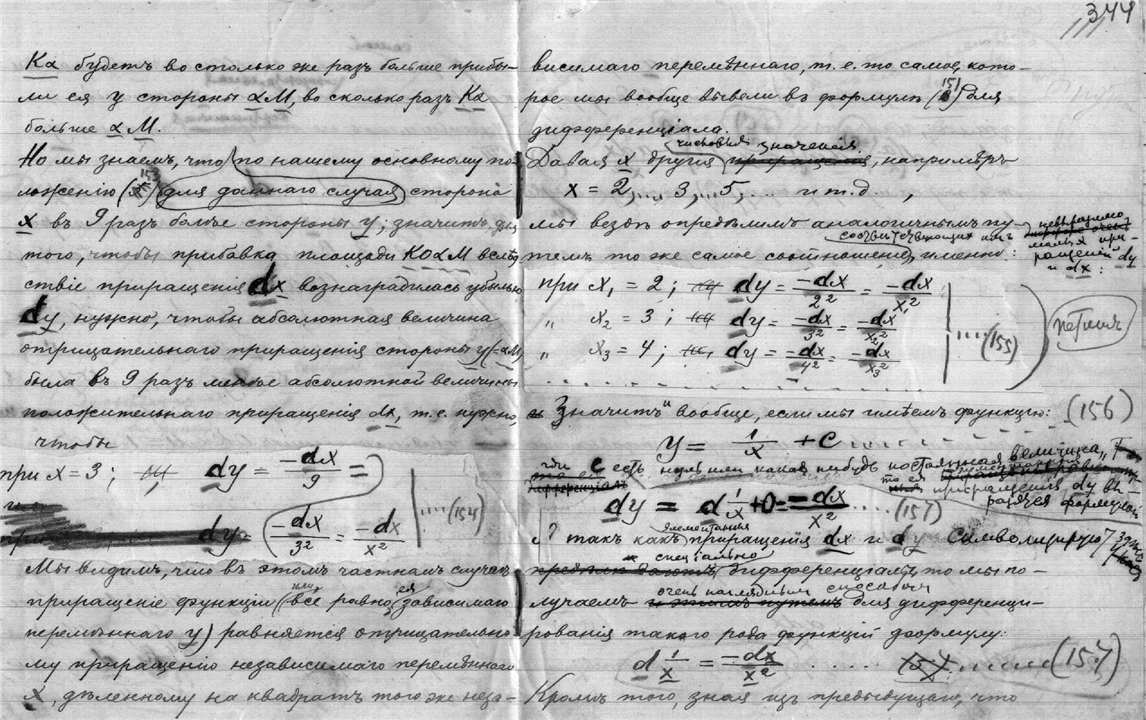 344
Ка будетъ во столько же разъ больше прибы-
ли ея у стороны αМ, во сколько разъ Ка
больше αМ.
Но мы знаемъ, что по нашему основному по-
ложенію для даннаго случая сторона
x въ 9 разъ болѣе стороны y; значитъ, для
того, чтобы прибавка площади КОαМ вслѣд-
ствіе приращенія dx вознаградилась убылью
dy, нужно, чтобы абсолютная величина
отрицательнаго приращенія стороны y (-αМ)
была въ 9 разъ менѣе абсолютной величины
положительнаго приращенія dx, т.е. нужно,
чтобы
при x = 3; dy = -dx/9 =
dy = -dx/3² = -dx/x² ....(154)
Мы видимъ, что въ этомъ частномъ случаѣ
приращеніе функціи (или все равно ея зависимаго
перемѣннаго y) равняется отрицательно
му приращенію независимаго перемѣннаго
x, дѣленному на квадратъ того же неза-
висимаго перемѣннаго, т.е. то самое, кото-
рое мы вообще вывели въ формулѣ (151) для
дифференціала.
Давая x другія числовыя значенія, напримѣръ
x = 2,... 3,... 5,... и т.д.,
мы вездѣ опредѣлимъ аналогичнымъ пу-
темъ то же самое соотношеніе соотвѣтствующихъ имъ безгранично малыхъ приращеній dy и dx, именно:
при x₁ = 2; dy = -dx/2² = -dx/x₁²
„ x₂ = 3; dy = -dx/3² = -dx/x₂²
„ x₃ = 4; dy = -dx/4² = -dx/x₃²
....(155)
петитъ
Значитъ" вообще, если мы имѣемъ функцію: (156)
y = 1/x + C
гдѣ C есть нуль или какая нибудь постоянная величина,
то ея приращенія dy вы-
разятся формулой
dy = d 1/x + 0 = -dx/x² .....(157)
А такъ какъ элементарныя приращенія dx и dy символизирую
спеціально дифференціалы, то мы по-
лучаемъ очень нагляднымъ способомъ для дифференци-
рованія такого рода функцій формулу:
d 1/x = -dx/x² ..... (157)
Кромѣ того, зная изъ предыдущаго, что